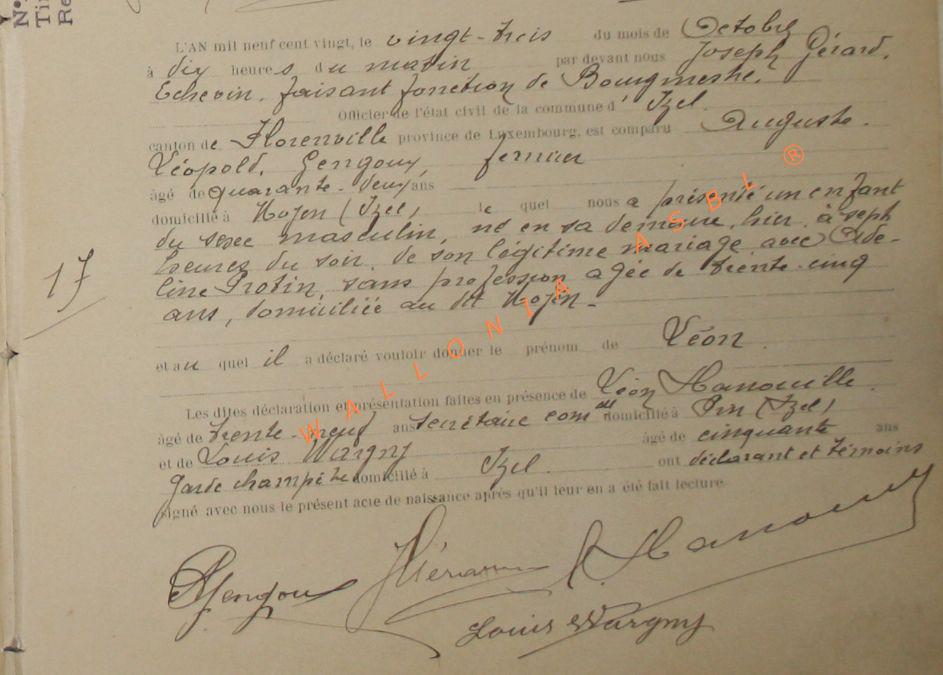 N°
Tin
Re
L'AN mil neuf cent vingt, le vingt-trois du mois de Octobre
à dix heures du matin par devant nous Joseph Gérard,
Echevin, faisant fonction de Bourgmestre,
Officier de l'état civil de la commune d' Izel
canton de Florenville province de Luxembourg, est comparu Auguste
Léopold, Gengoux, fermier
âgé de quarante-deux ans
domicilié à Moyen (Izel) le quel nous a présenté un enfant
du sexe masculin, né en sa demeure, hier, à sept
heures du soir, de son légitime mariage avec Ade-
line Protin, sans profession agée de trente-cinq
ans, domiciliée au dit Moyen -
17
et au quel il a déclaré vouloir donner le prénom de Léon
Les dites déclaration et présentation faites en présence de Léon Hanouille
âgé de trente-neuf ans secrétaire com al domicilié à Pin (Izel)
et de Louis Wargny âgé de cinquante ans
garde champêtre domicilié à Izel ont déclarant et témoins
signé avec nous le présent acte de naissance après qu'il leur en a été fait lecture
AGengoux
Louis Wargny
WALLONIA ASBL ®